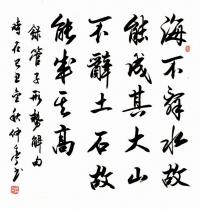 海不辞水故
能成其大山
不辭土石故
能成其高
錄管子形勢解句
時在己丑金秋仲